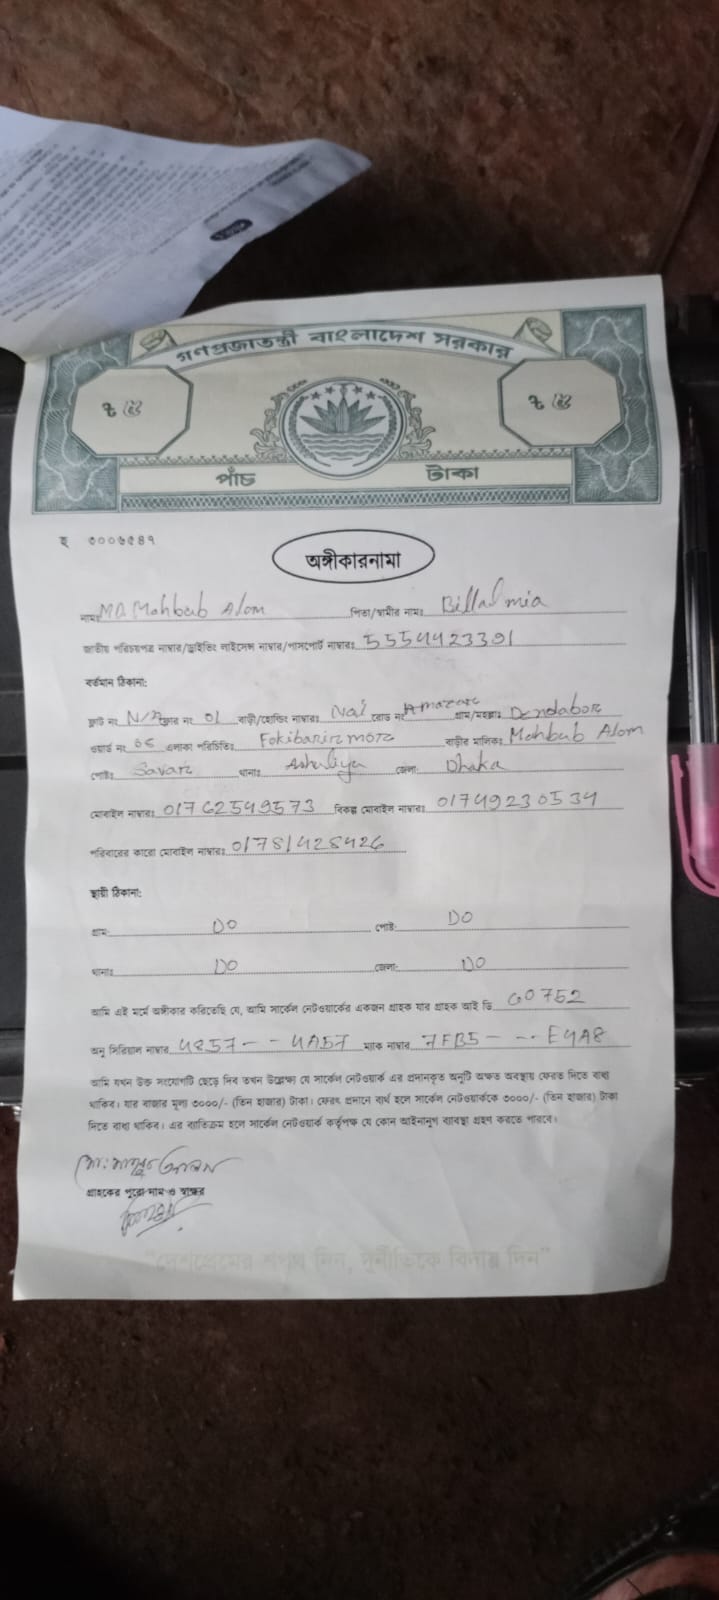 গণপ্রজাতন্ত্রী বাংলাদেশ সরকার
৳ ৫ ৳ ৫
পাঁচ টাকা
হ ৩০০৬৫৪৭
অঙ্গীকারনামা
নামঃ MD. Mahbub Alom পিতা/স্বামীর নামঃ Billal mia
জাতীয় পরিচয়পত্র নাম্বার/ড্রাইভিং লাইসেন্স নাম্বার/পাসপোর্ট নাম্বারঃ 5554423391
বর্তমান ঠিকানা:
ফ্লাট নং N/A ফ্লোর নং 01 বাড়ী/হোল্ডিং নাম্বারঃ রোড নং গ্রাম/মহল্লাঃ Dendabor
ওয়ার্ড নং 06 এলাকা পরিচিতিঃ Fokibarir more বাড়ীর মালিকঃ Mahbub Alom
পোষ্টঃ Savar থানাঃ Ashuliya জেলা: Dhaka
মোবাইল নাম্বারঃ 01762549573 বিকল্প মোবাইল নাম্বারঃ 01749230534
পরিবারের কারো মোবাইল নাম্বারঃ 01781428426
স্থায়ী ঠিকানা:
গ্রাম: DO পোষ্ট: DO
থানাঃ DO জেলা: DO
আমি এই মর্মে অঙ্গীকার করিতেছি যে, আমি সার্কেল নেটওয়ার্কের একজন গ্রাহক যার গ্রাহক আই ডি G0752
অনু সিরিয়াল নাম্বার 4857-- -4A57 ম্যাক নাম্বার 7FB5- -- E4A8
আমি যখন উক্ত সংযোগটি ছেড়ে দিব তখন উল্লেক্ষ্য যে সার্কেল নেটওয়ার্ক এর প্রদানকৃত অনুটি অক্ষত অবস্থায় ফেরত দিতে বাধ্য
থাকিব। যার বাজার মূল্য ৩০০০/- (তিন হাজার) টাকা। ফেরৎ প্রদানে ব্যর্থ হলে সার্কেল নেটওয়ার্ককে ৩০০০/- (তিন হাজার) টাকা
দিতে বাধ্য থাকিব। এর ব্যতিক্রম হলে সার্কেল নেটওয়ার্ক কর্তৃপক্ষ যে কোন আইনানুগ ব্যাবস্থা গ্রহণ করতে পারবে।
গ্রাহকের পুরো নাম ও স্বাক্ষর
"দেশপ্রেমের শপথ নিন, দুর্নীতিকে বিদায় দিন"